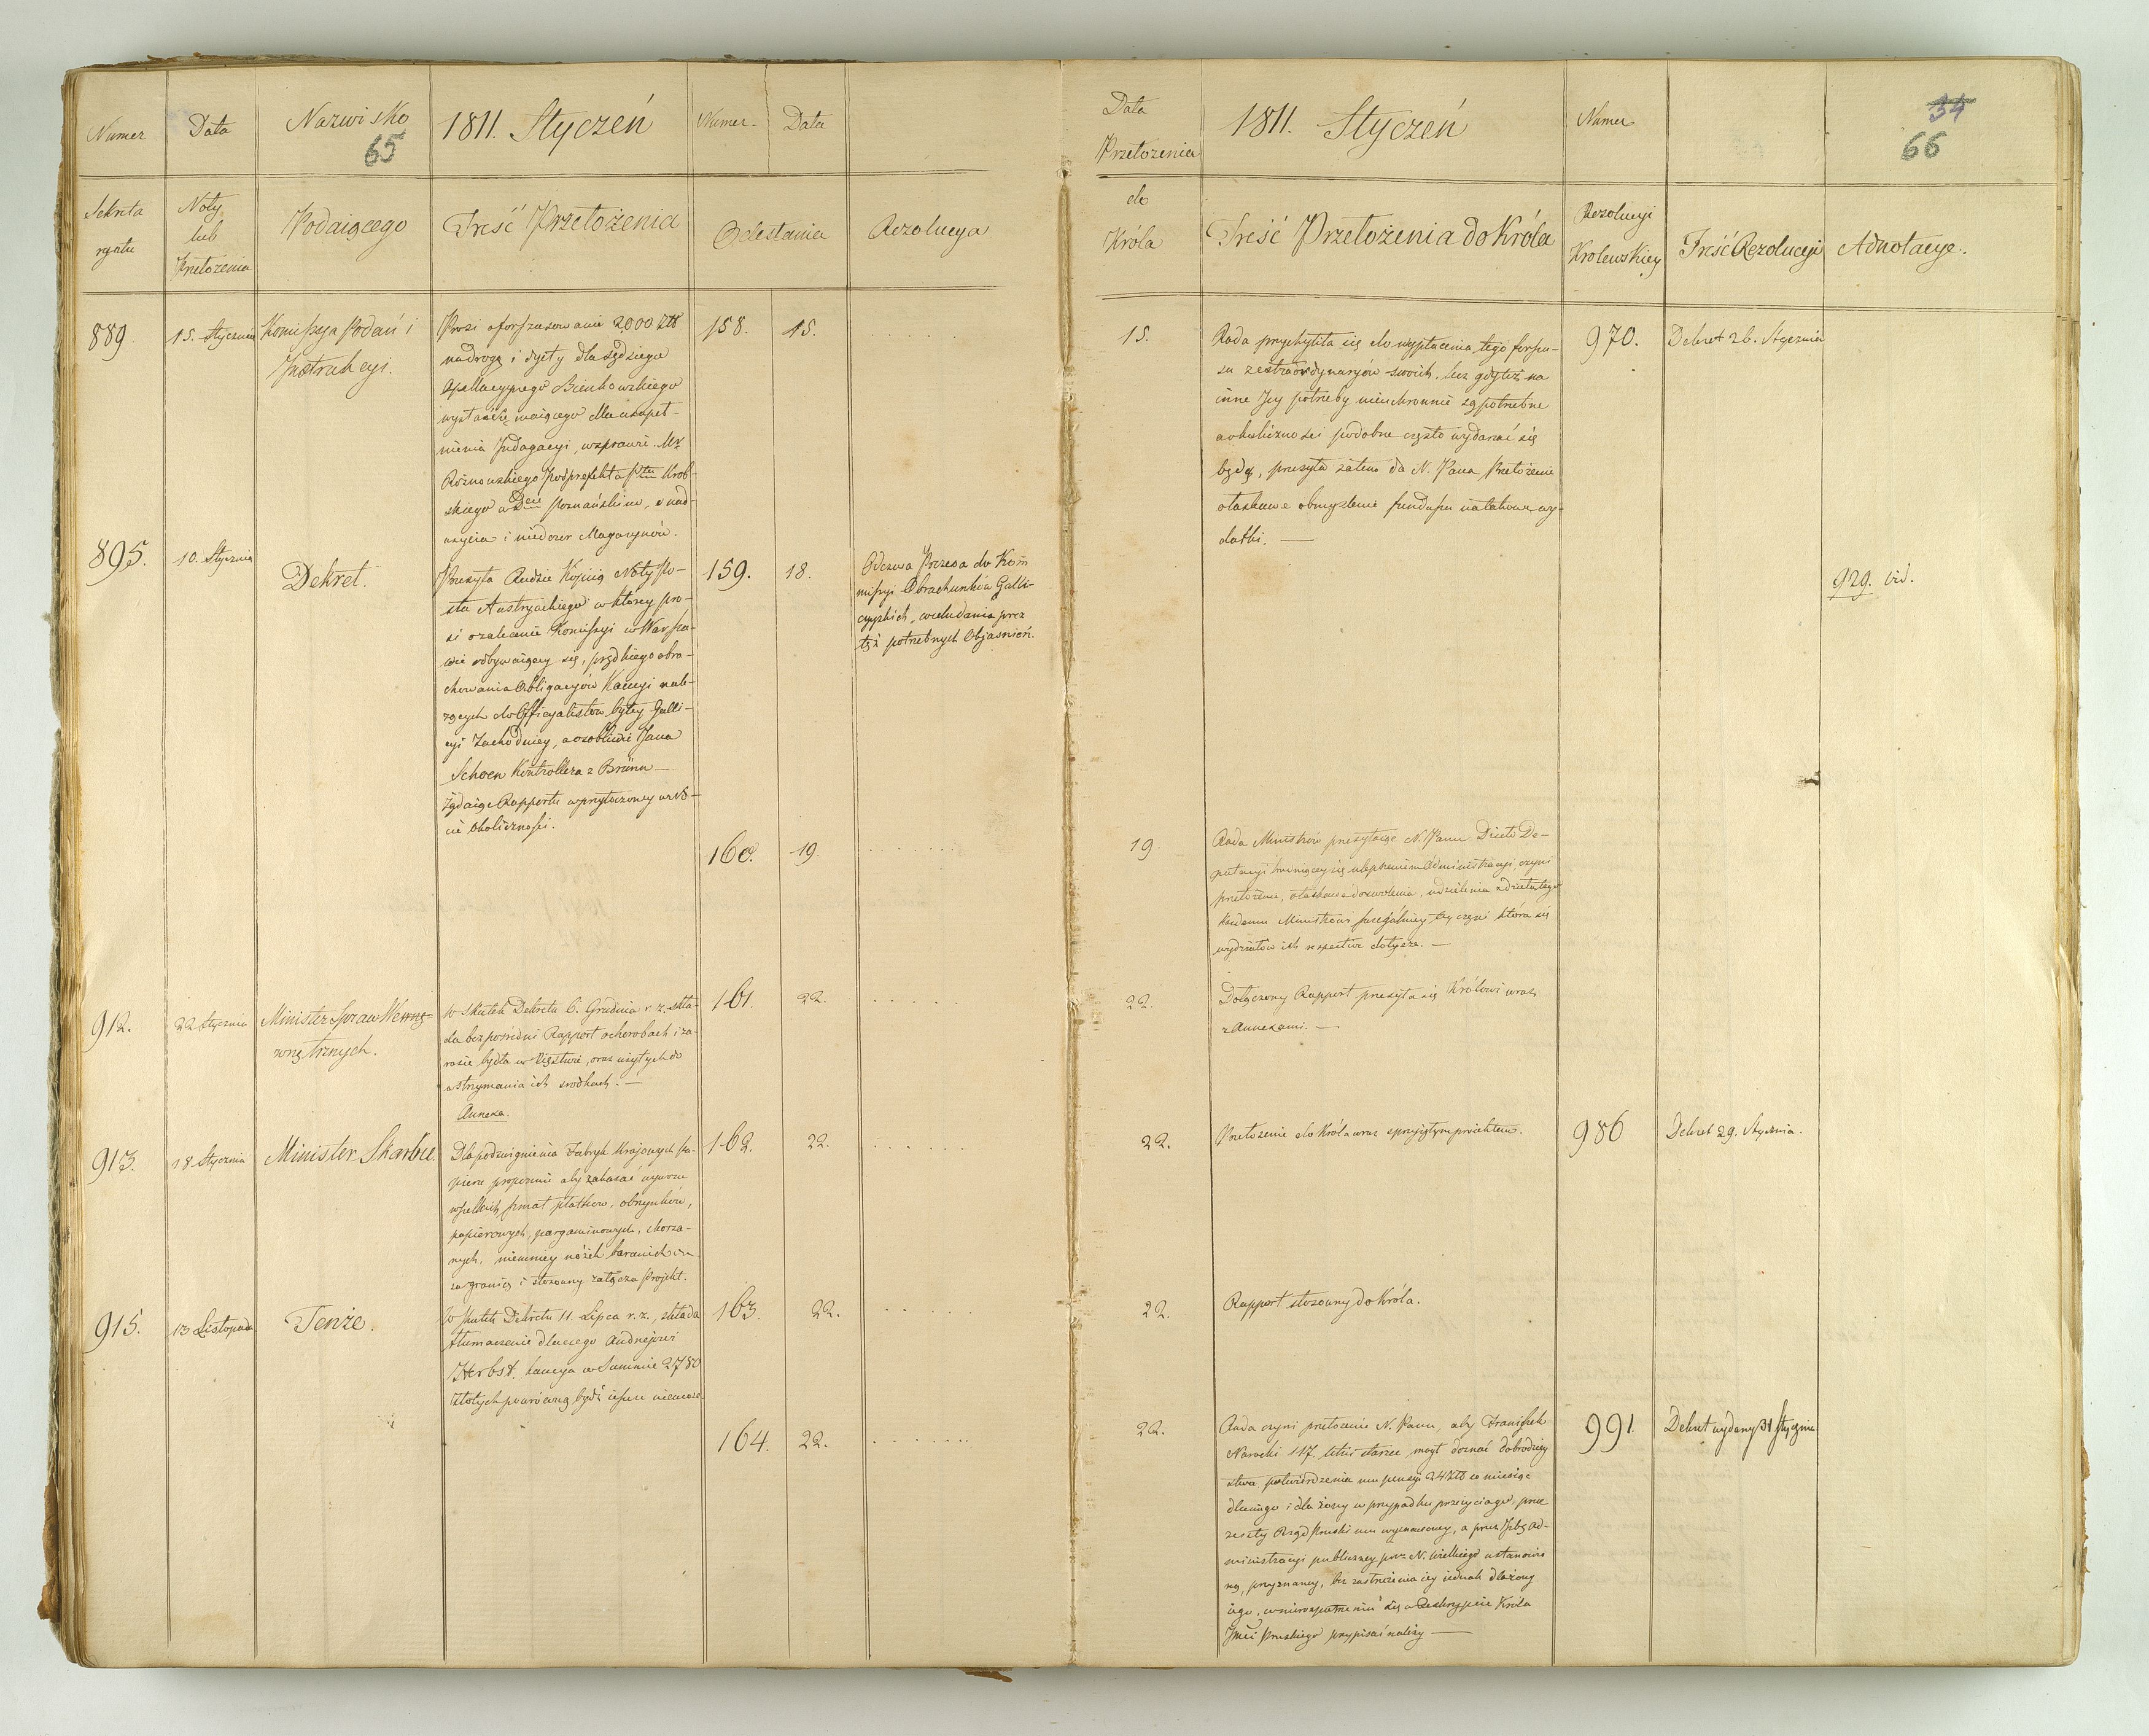 Numer
Data
Nazwisko
65
1811. Styczeń
Numer
Data
Sekreta
ryatu
Noty
lub
Przełożenia
Podaiącego
Treść Przełożenia
Odesłania
Rezolucya
889.
15. Stycznia
Komissya Podań i
Instrukcyi.
Prosi o forszusowanie 2000 Złł
na drogę i dyety dla Sędziego
Apellacyinego Bienkowskiego
wysłać się maiącego dla uzupeł-
nienia Indagacyi, w sprawie
Rożnowskiego Podprefekta Pttu Krob-
skiego w Depcie Poznańskim, o nad-
użycia i niedozor Magazynów.
158.
15.
. . . . .
895.
10. Stycznia
Dekret.
Przesyła Radzie Kopiią Noty Po-
sła Austryackiego w ktorey pro-
si o zalecenie Komissyi w Warsza-
wie odbywaiącey się, prędkiego obra-
chowania Obligacyów Kaucyi nale-
żących do Officyalistów byłey Galli-
cyi Zachodniey, a osobliwie Jana
Schoen Kontrollera z Brünn —
żądaiąc Rapportu w przytoczoney w No-
cie okoliczności.
159.
18.
Odezwa Prezesa do Kom
missyi Obrachunków Galli-
cyyskich, względem dania przez
też potrzebnych Objasnień.
160.
19.
. . . . . .
912.
22 Stycznia
Minister Spraw Wewnę-
wnętrznych.
W skutek Dekretu 6. Grudnia r. z. skła-
da bezpośredni Rapport o chorobach i za-
razie bydła w Xięstwie, oraz użytych do
wstrzymania ich srodkach. —
Annexa.
161.
22.
. . . . .
913.
18 Stycznia
Minister Skarbu
Dla podzwignienia Fabryk Kraiowych Pa-
pieru proponuie aby zakazać wywozu
wszelkich szmat płatków, obrzynków,
papierowych, pargaminowych, skorza-
nych, niemniey nóżek baranich
za granicę i stosowny załącza Projekt.
162.
22.
. . . . .
915.
13 Listopada
Tenże.
W skutek Dekretu 11. Lipca r. z., składa
tłumaczenie dlaczego Andrzejowi
Herbst, kaucya w Summie 2780
Złotych powróconą bydź ieszcze niemoże.
163.
22.
. . . . .
164.
22.
. . . . . .
Data
Przełożenia
do
Króla
1811. Styczeń
Treść Przełożenia do Króla
Numer
Rezolucyi
Krolewskiey
Treść Rezolucyi
34
66
Adnotacye.
15.
Rada przychyliła się do wypłacenia tego forszu-
su z extraordynaryów swoich, lecz gdy też na
inne Jey potrzeby nieuchronnie są potrzebne
a okoliczności podobne często wydarzać się
będą, przesyła zatem do N. Pana Przełożenie
o łaskawe obmyslenie funduszu na takowe wy-
datki. —
970.
Dekret 26. Stycznia
929. vid.
19.
Rada Ministrów przesyłaiąc N. Panu Dzieło De-
putacyi trudniącey się ulepszeniem Administracyi, czyni
przełożenie, o łaskawe dozwolenie, udzielenia z dzieła tego
każdemu Ministrowi szczególniey tey części która się
wydziałów ich respective dotycze. —
22.
Dołączony Rapport przesyła się Królowi wraz
z Annexami. —
22.
Przełożenie do Króla wraz z przyiętym projektem.
986
Dekret 29. Stycznia.
22.
Rapport stosowny do Króla.
22.
Rada czyni przełożenie N. Panu, aby Franiszek
Narocki 117 letni starzec mógł doznać dobrodziey
stwa potwierdzenia mu pensyi 24 Złł co miesiąc
dla niego i dla żony w przypadku przeżycia go, przez
zeszły Rząd Pruski mu wyznaczoney, a przez Izbę Ad-
ministracyi publiczney prz. N. Wielkiego ustanowio
ną, przyznaney, bez zastrzeżenia iey iednak dla żony
iego, co nierozpatrzeniu się w Reskrypcie Króla
Jmci Pruskiego przypisać należy —
991
Dekret wydany 31 Stycznia